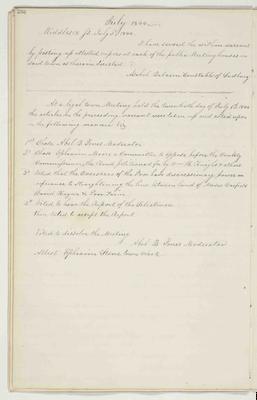 July 1844
Middlesex ss. July 5th 1844.
I have served the within warrant
by posting up attested copies at each of the public Meeting houses in
said town as herein directed
Asahel Balcom Constable of Sudbury
At a legal town Meeting held the day of July 1844
the articles in the preceding warrant were taken up and acted upon
in the following manner Viz
1st Chose Abel B. Jones Moderator
2d Chose Ephraim Moore a Committee to appear before the County
Commissioners, the Road petitioned for by & others
3d Voted that the Overseers of the Poor have discressionary power in
reference to Straightening the line between land of
& Poor Farm
4th Voted to hear the Report of the Selectmen
then Voted to accept the Report
Voted to dissolve the Meeting
Abel B. Jones Moderator
Attest Ephraim town Clerk